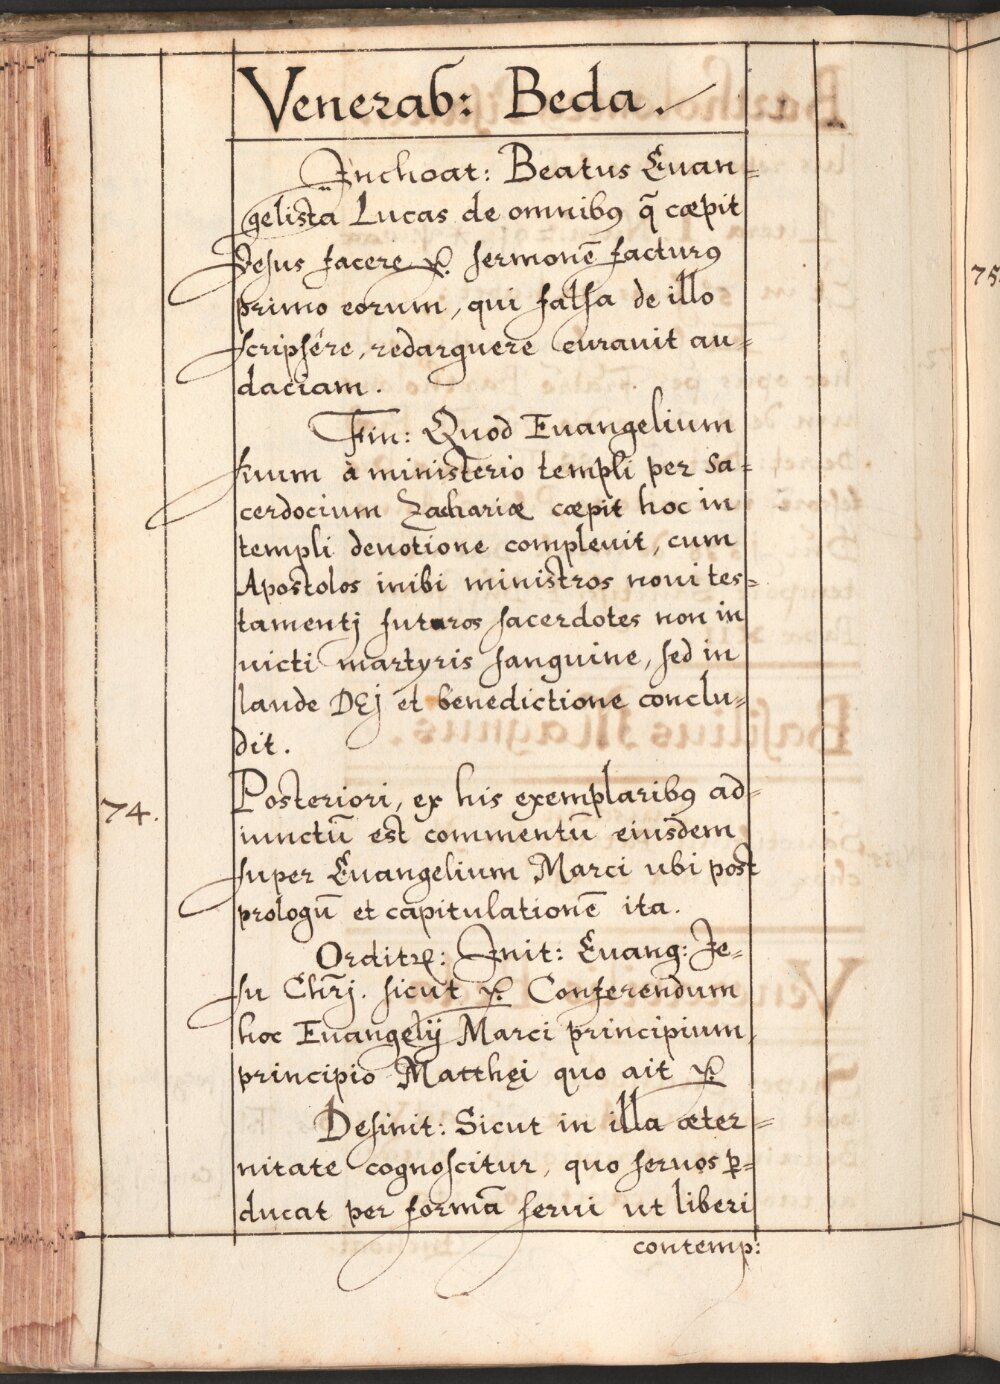 Venerab: Beda.
Inchoat: Beatus Euan=
gelista Lucas de omnibꝰ q̃ cæpit
Jesus facere ꝛc. sermonẽ facturꝰ
primo eorum, qui falsa de illo
scripsêre, redarguere curauit au=
daciam.
Fin: Quod Euangelium
suum à ministerio templi per Sa=
cerdocium Zachariæ cæpit hoc in
templi deuotione compleuit, cum
Apostolos inibi ministros noui tes=
tamentj futuros sacerdotes non in
uicti martyris sanguine, sed in
laude DEj et benedictione conclu=
dit.
74.
Posteriori, ex his exemplaribꝰ ad=
iunctũ est commentũ eiusdem
super Euangelium Marci ubi post
prologũ et capitulationẽ ita.
Orditꝛ: Init: Euang: Je=
su Chr̃j. sicut ꝛc. Conferendum
hoc Euangelij Marci principium,
principio Matthęi quo ait ꝛc.
Desinit: Sicut in illa æter=
nitate cognoscitur, quo seruos ꝑ=
ducat per formã serui ut liberi
contemp:
75.